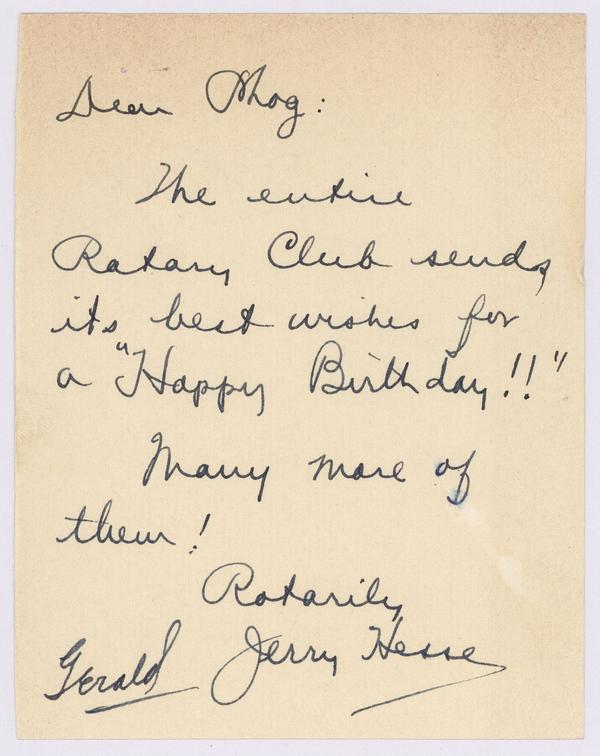 Dear Phog:
The entire
Rotary Club sends
its best wishes for
a "Happy Birthday!!"
Many more of
them!
Rotarily
Gerald Jerry Hesse